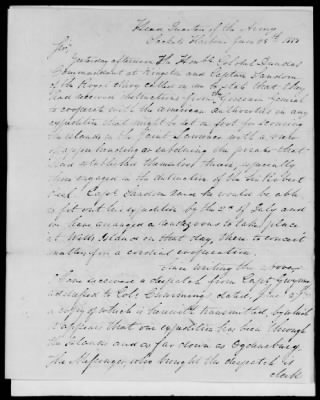 Head Quarters of the Army
Sackets Harbour June 28th 1838
Sir,
Yesterday afternoon the Honble Colonel Dundas
Commandant at Kingston and Captain Sandom
of the Royal Navy called on me to state that they
had received instructions from the Governor General
to cooperate with the American authorities on any
expedition that might be set on foot for scouring
the islands in the Saint Lawrence with a view
of apprehending or expelling the pirates that
had established themselves there, especially
those engaged in the destruction of the Sir Robert
Peel. Capt Sandom said he would be able
to fit out his expedition by the 2d of July and
it was arranged a rendezvous to take place
at Wells Island on that day, then to concert
matters for a cordial cooperation.
Since writing the above
I have received a despatch from Capt Gwynn
addressed to Colo Cumming dated June 27th
a copy of which is herewith transmitted, by which
it appears that one expedition has been through
the Islands and as far down as Ogdensburg.
The Messenger who brought the despatch is